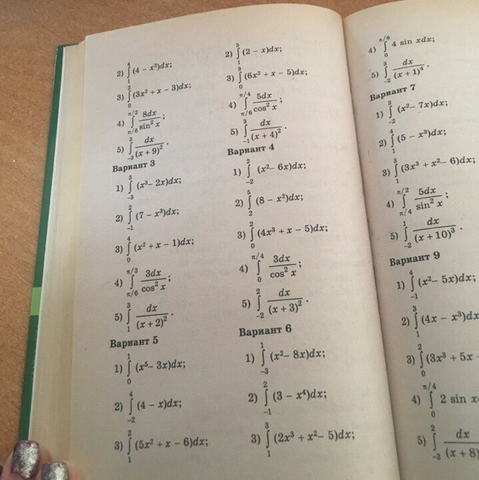 2) ∫₁⁴ (4 − x²)dx;
3) ∫₀² (3x² + x − 3)dx;
4) ∫_{π/6}^{π/2} 8dx/sin² x;
5) ∫₋₃³ dx/(x + 9)².
Вариант 3
1) ∫₋₃³ (x³− 2x)dx;
2) ∫₋₁² (7 − x³)dx;
3) ∫₀⁴ (x² + x − 1)dx;
4) ∫_{π/6}^{π/3} 3dx/cos² x;
5) ∫₁³ dx/(x + 2)².
Вариант 5
1) ∫₀¹ (x⁵− 3x)dx;
2) ∫₋₂⁴ (4 − x)dx;
3) ∫₁² (5x² + x − 6)dx;
2) ∫₁⁵ (2 − x)dx;
3) ∫₀³ (6x² + x − 5)dx;
4) ∫_{π/6}^{π/4} 5dx/cos² x;
5) ∫₋₁¹ dx/(x + 4)².
Вариант 4
1) ∫₋₂¹ (x²− 6x)dx;
2) ∫₂⁵ (8 − x²)dx;
3) ∫₀² (4x³ + x − 5)dx;
4) ∫₀^{π/4} 3dx/cos² x;
5) ∫₋₂² dx/(x + 3)².
Вариант 6
1) ∫₋₃¹ (x²− 8x)dx;
2) ∫₋₁² (3 − x⁴)dx;
3) ∫₁³ (2x³ + x²− 5)dx;
4) ∫₀^{π/6} 4 sin xdx;
5) ∫₋₂³ dx/(x + 1)⁴.
Вариант 7
1) ∫₋₂¹ (x²− 7x)dx;
2) ∫₁⁴ (5 − x³)dx;
3) ∫₀¹ (3x³ + x²− 6)dx;
4) ∫_{π/4}^{π/2} 5dx/sin² x;
5) ∫₋₂¹ dx/(x + 10)³
Вариант 9
1) ∫₋₁⁴ (x²− 5x)dx;
2) ∫₁³ (4x − x³)d
3) ∫₀² (3x³ + 5x
4) ∫₀^{π/4} 2 sin x
5) ∫₋₃² dx/(x + 8)